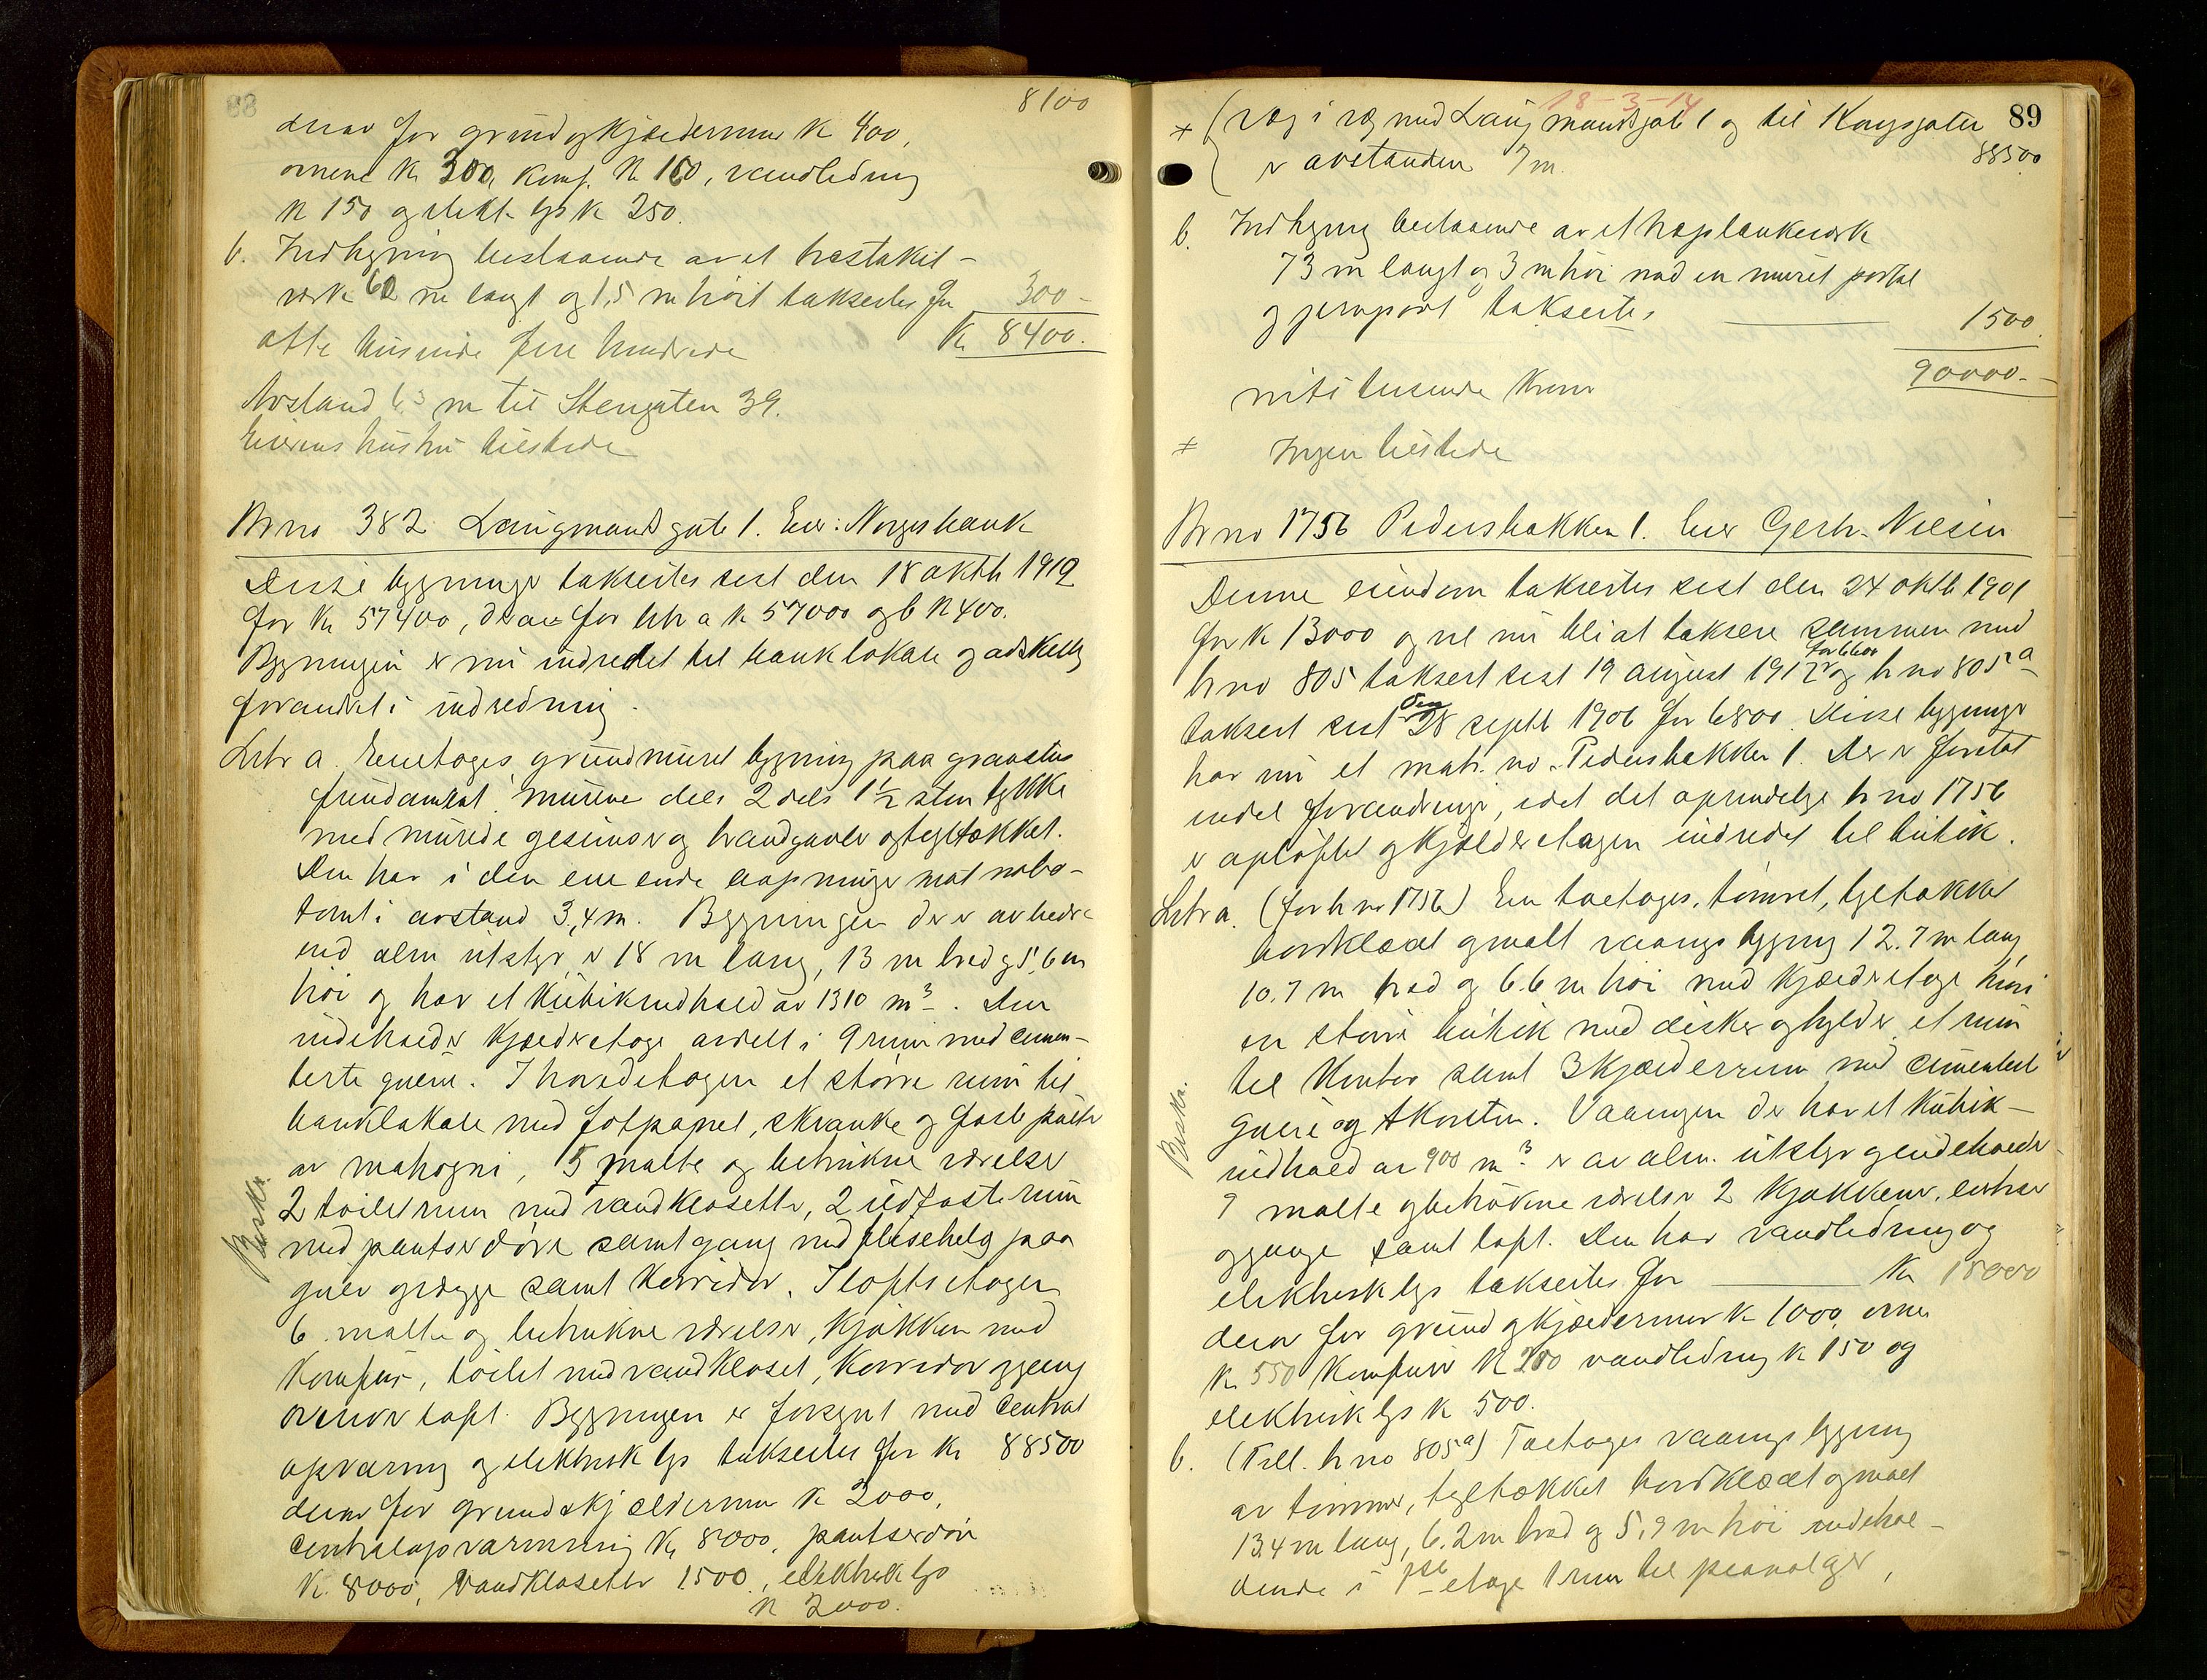 88
8100
derav for grund og kjældermur K 400,
ovnene K 300, komf. K 100, vandledning
K 150 og elekt. lys K 250.
b. Indhegning bestaaende av et træstakit-
verk 60 m langt og 1,5 m høit takseres for 300-
otte tusinde fire hundrede K 8400.
Avstand 6.3 m til Stengaten 39.
Eierens hustru tilstede
Br no 382 Laugmandsgate 1. Eier: Norges bank
Disse bygninger takseres sist den 18 oktb 1912
for K 57400, derav for litr a K 57000 og b K 400.
Bygningen er nu indredet til banklokale og adskillig
forandret i indredning.
Litr a. Enetages grundmuret bygning paa graastens
fundament, murene dels 2 dels 1½ sten tykke
med murede gesimser og brandgavler og tegltækket.
Den har i den ene ende aapninger mot nabo-
tomt i avstand 3,4 m. Bygningen der er av bedre
end alm utstyr er 18 m lang, 13 m bred og 5,6 m
høi og har et kubikindhold av 1310 m³. Den
indeholder kjælderetage avdelt i 9 rum med cemen-
terte gulve. I hovedetagen et større rum til
banklokale med fotpanel, skranke og faste pulte
av mahogni, 5 malte og betrukne værelser
2 toiletrum med vandklosetter, 2 ildfaste rum
med pantserdøre samt gang med flisebelæg paa
gulv og vægge samt korridor. I loftsetagen
6 malte og betrukne værelser, kjøkken med
komfur, toilet med vandkloset, korridor og gang
ovenover loft. Bygningen er forsynt med central
opvarming og elektrisk lys takseres for K 88500
derav for grund & kjældermur K 3000,
centralopvarmning K 8000, pantserdøre
K 8000, vandklosetter 1500, elektrisk lys
K 2000.
Beskr.
89
18-3-14
+ (væg i væg med Laugmandsgate 1 og til Kongsgaten
er avstanden 7 m.
88500
b. Indhegning bestaaende av et træplankeverk
73 m langt og 3 m høi med en muret portal
og jernport takseres 1500
nitti tusinde kroner 90000.-
+ Ingen tilstede
Br no 1756 Pedersbakken 1. Eier Gerh. Nilsen
Denne eiendom takseres sist den 24 oktb 1901
for K 13000 og vil nu bli at taksere sammen med
br no 805 taksert sist 19 august 1912 for 6600 og br no 805a
taksert sist den 28 septb 1906 for 6800. Disse bygninger
har nu et matr. no. Pedersbakken 1. Der er foretat
endel forandringer, idet det oprindelige br no 1756
er opløftet og kjælderetagen indredet til butik.
Litr a. (for br no 1756) En toetages, tømret, tegltækket
bordklædt og malt vaanings bygning 12.7 m lang
10.7 m bred og 6.6 m høi med kjælderetage hvori
en større butik med disker og hylder et rum
til kontor samt 3 kjælderrum med cementert
gulv og skorsten. Vaaningen der har et kubik-
indhold av 900 m³ er av alm. utstyr og indeholder
9 malte og betrukne værelser 2 kjøkkener, entreer
og gange samt loft. Den har vandledning og
elektrisk lys takseres for K 18000
derav for grund og kjældermur K 1000, ovner
K 550 komfurer K 200 vandledning K 150 og
elektrisk lys K 500.
Beskr.
b. (Till. br no 805a) Toetages vaanings bygning
av tømmer, tegltækket bordklædt og malt
13.4 m lang, 6.2 m bred og 5,9 m høi indehol-
dende i 1ste etage 1 rum til